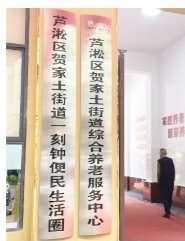 芦淞区贺家土街道综合养老服务中心
芦淞区贺家土街道一刻钟便民生活圈